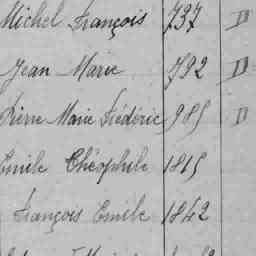 Michel François 737 III
Jean Marie 792 III
Pierre Marie Frédéric 985 II
Emile Théophile 1815
François Emile 1842